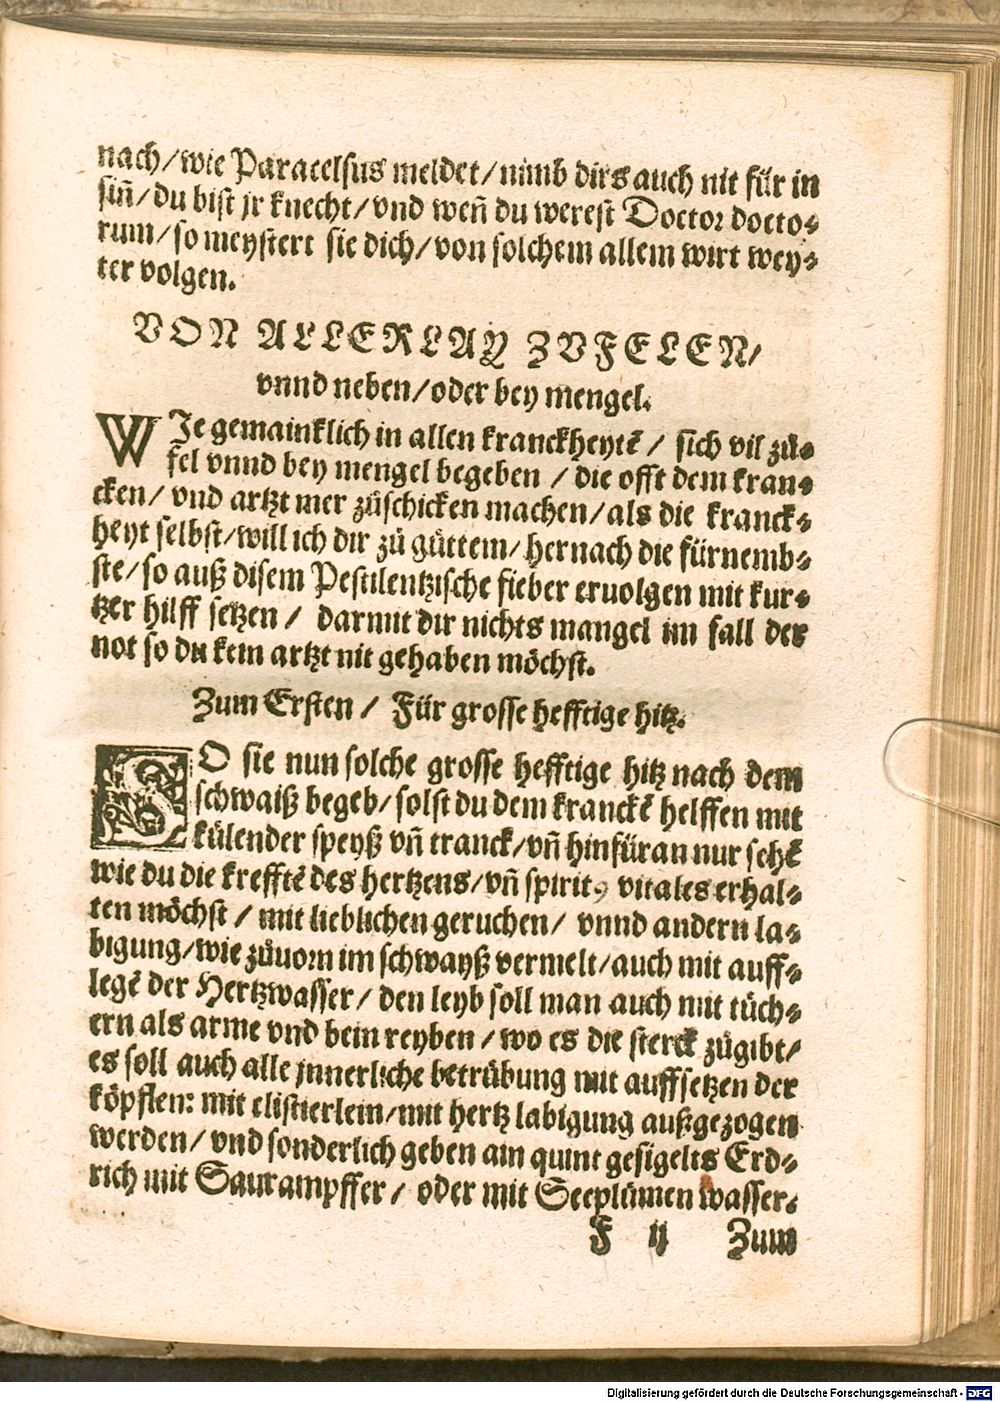 nach/wie Paracelsus meldet/nimb dirs auch nit für in
siñ/du bist jr knecht/vnd weñ du werest Doctor docto⸗
rum/so meystert sie dich/von solchem allem wirt wey⸗
ter volgen.
VON ALLERLAY ZVFELEN/
vnnd neben/oder bey mengel.
WJe gemainklich in allen kranckheytẽ/ sich vil zů⸗
fel vnnd bey mengel begeben /die offt dem kran⸗
cken/vnd artzt mer zůschicken machen/als die kranck⸗
heyt selbst/will ich dir zů gůttem/hernach die fürnemb⸗
ste/so auß disem Pestilentzische fieber eruolgen mit kur⸗
tzer hilff setzen/ darmit dir nichts mangel im fall der
not so du kein artzt nit gehaben möchst.
Zum Ersten/ Für grosse hefftige hitz.
SO sie nun solche grosse hefftige hitz nach dem
schwaiß begeb/solst du dem kranckẽ helffen mit
külender speyß vñ tranck/vñ hinfüran nur sehẽ
wie du die krefftẽ des hertzens/vñ spiritꝰ vitales erhal⸗
ten möchst/mit lieblichen geruchen/ vnnd andern la⸗
bigung/wie zůuorn im schwayß vermelt/auch mit auff⸗
legẽ der Hertzwasser/den leyb soll man auch mit tüch⸗
ern als arme vnd bein reyben/wo es die sterck zůgibt/
es soll auch alle jnnerliche betrübung mit auffsetzen der
köpflen: mit clistierlein/mit hertz labigung außgezogen
werden/vnd sonderlich geben ain quint gesigelts Erd⸗
rich mit Saurampffer/ oder mit Seeplůmen wasser.
F ij Zum
Digitalisierung gefördert durch die Deutsche Forschungsgemeinschaft - DFG